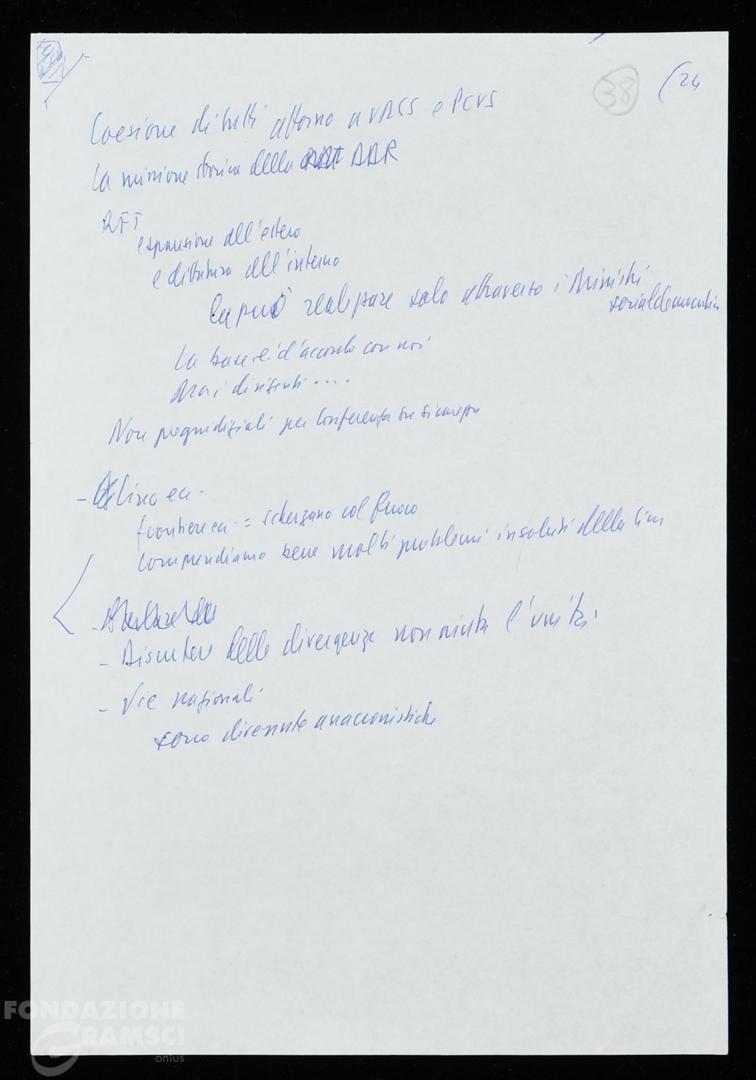 38
(24
Coesione di tutti attorno a URSS e PCUS
La missione storica della DDR
RFT
espansione all'estero
e dittatura all'interno
La può realizzare solo attraverso i Ministri
socialdemocratici
La base è d'accordo con noi
Ma i dirigenti ....
Non pregiudiziali per Conferenza su sicurezza
- Cina ecc.
frontiere ecc. = scherzano col fuoco
Comprendiamo bene molti problemi insoluti della Cina
- Discutere delle divergenze non aiuta l'unità.
- Vie nazionali
sono divenute anacronistiche
FONDAZIONE
GRAMSCI
onlus